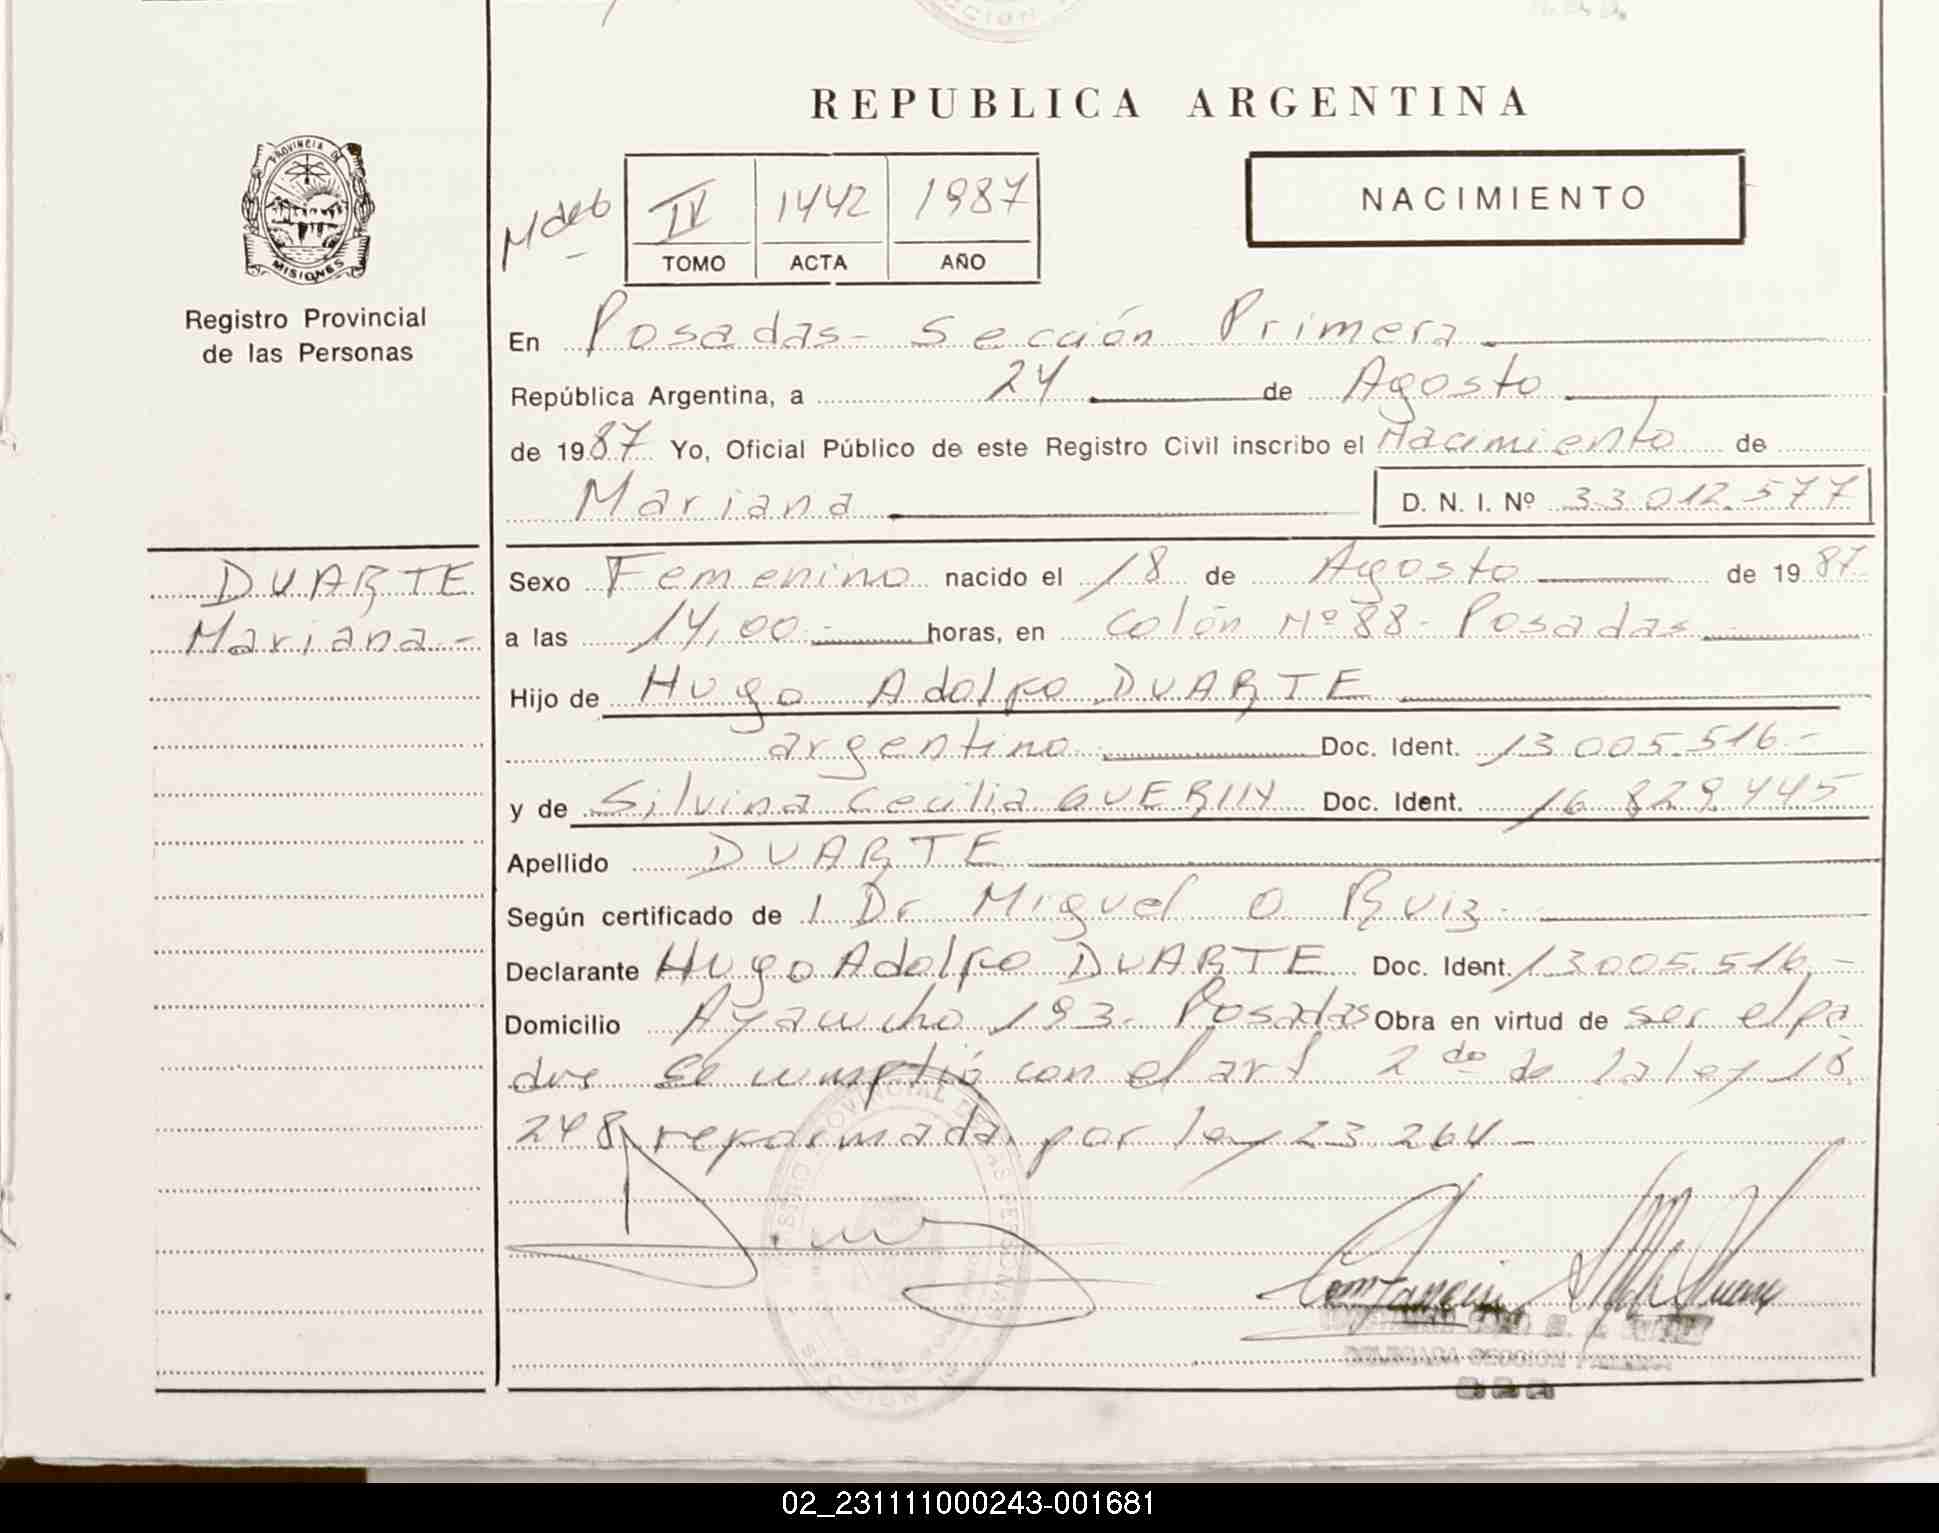 REPUBLICA ARGENTINA
PROVINCIA DE
MISIONES
Registro Provincial
de las Personas
IV 1442 1987
TOMO ACTA AÑO
NACIMIENTO
En Posadas - Sección Primera
República Argentina, a 24 de Agosto
de 1987 Yo, Oficial Público de este Registro Civil inscribo el Nacimiento de
Mariana D. N. I. Nº 33 012.577
DUARTE
Mariana -
Sexo Femenino nacido el 18 de Agosto de 1987
a las 14,00 horas, en Colón Nº 88 - Posadas
Hijo de Hugo Adolfo DUARTE
argentino Doc. Ident. 13 005.516 -
y de Silvina Cecilia GUERINY Doc. Ident. 16 829.445
Apellido DUARTE
Según certificado de Dr Miguel O Ruiz
Declarante Hugo Adolfo DUARTE Doc. Ident. 13 005.516 -
Domicilio Ayacucho 193 - Posadas Obra en virtud de ser el pa
dre Se cumplió con el art 2do de la ley 18.
248 reformada por ley 23 264 -
02_231111000243-001681